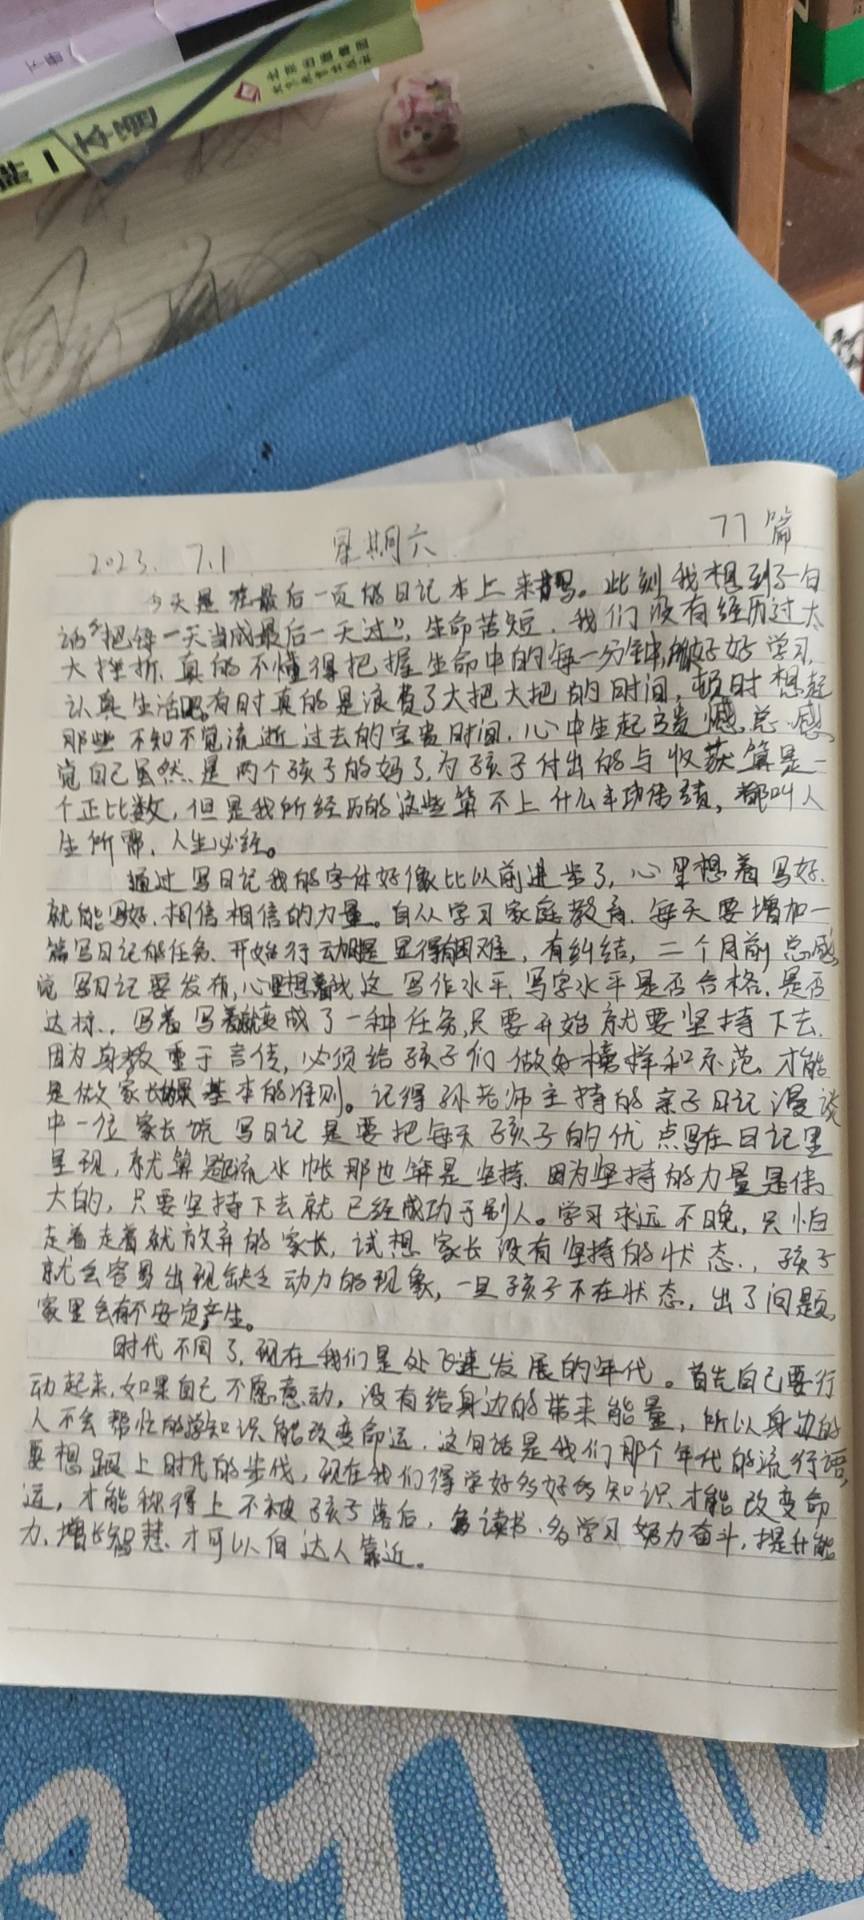 下册
北京出版集团
一本通
2023. 7.1 星期六 77篇
今天是在最后一页的日记本上来书写。此刻我想到了一句
话"把每一天当成最后一天过", 生命苦短, 我们没有经历过太
大挫折, 真的不懂得把握生命中的每一分钟, 好好学习,
认真生活吧。有时真的是浪费了大把大把的时间, 顿时想起
那些不知不觉流逝过去的宝贵时间, 心中生起遗憾, 总感
觉自己虽然是两个孩子的妈了, 为孩子付出的与收获算是一
个正比数, 但是我所经历的这些算不上什么丰功伟绩, 都叫人
生所需, 人生必经。
通过写日记我的字体好像比以前进步了, 心里想着写好,
就能写好, 相信相信的力量。自从学习家庭教育, 每天要增加一
篇写日记的任务, 开始行动 显得有困难, 有纠结, 二个月前总感
觉写日记要发布, 心里想着我这写作水平, 写字水平是否合格, 是否
达标, 写着写着就变成了一种任务, 只要开始就要坚持下去,
因为身教重于言传, 必须给孩子们做好榜样和示范, 才能
是做家长 基本的准则。记得孙老师主持的亲子日记漫谈
中一位家长说写日记是要把每天孩子的优点写在日记里
呈现, 就算是流水帐那也算是坚持, 因为坚持的力量是伟
大的, 只要坚持下去就已经成功于别人。学习永远不晚, 只怕
走着走着就放弃的家长, 试想家长没有坚持的状态, 孩子
就会容易出现缺乏动力的现象, 一旦孩子不在状态, 出了问题,
家里会有不安定产生。
时代不同了, 现在我们是处飞速发展的年代。首先自己要行
动起来, 如果自己不愿意动, 没有给身边的带来能量, 所以身边的
人不会帮忙的 知识能改变命运, 这句话是我们那个年代的流行语,
要想跟上时代的步伐, 现在我们得学好多好多知识才能改变命
运, 才能称得上不被孩子落后, 多读书, 多学习努力奋斗, 提升能
力, 增长智慧, 才可以向达人靠近。